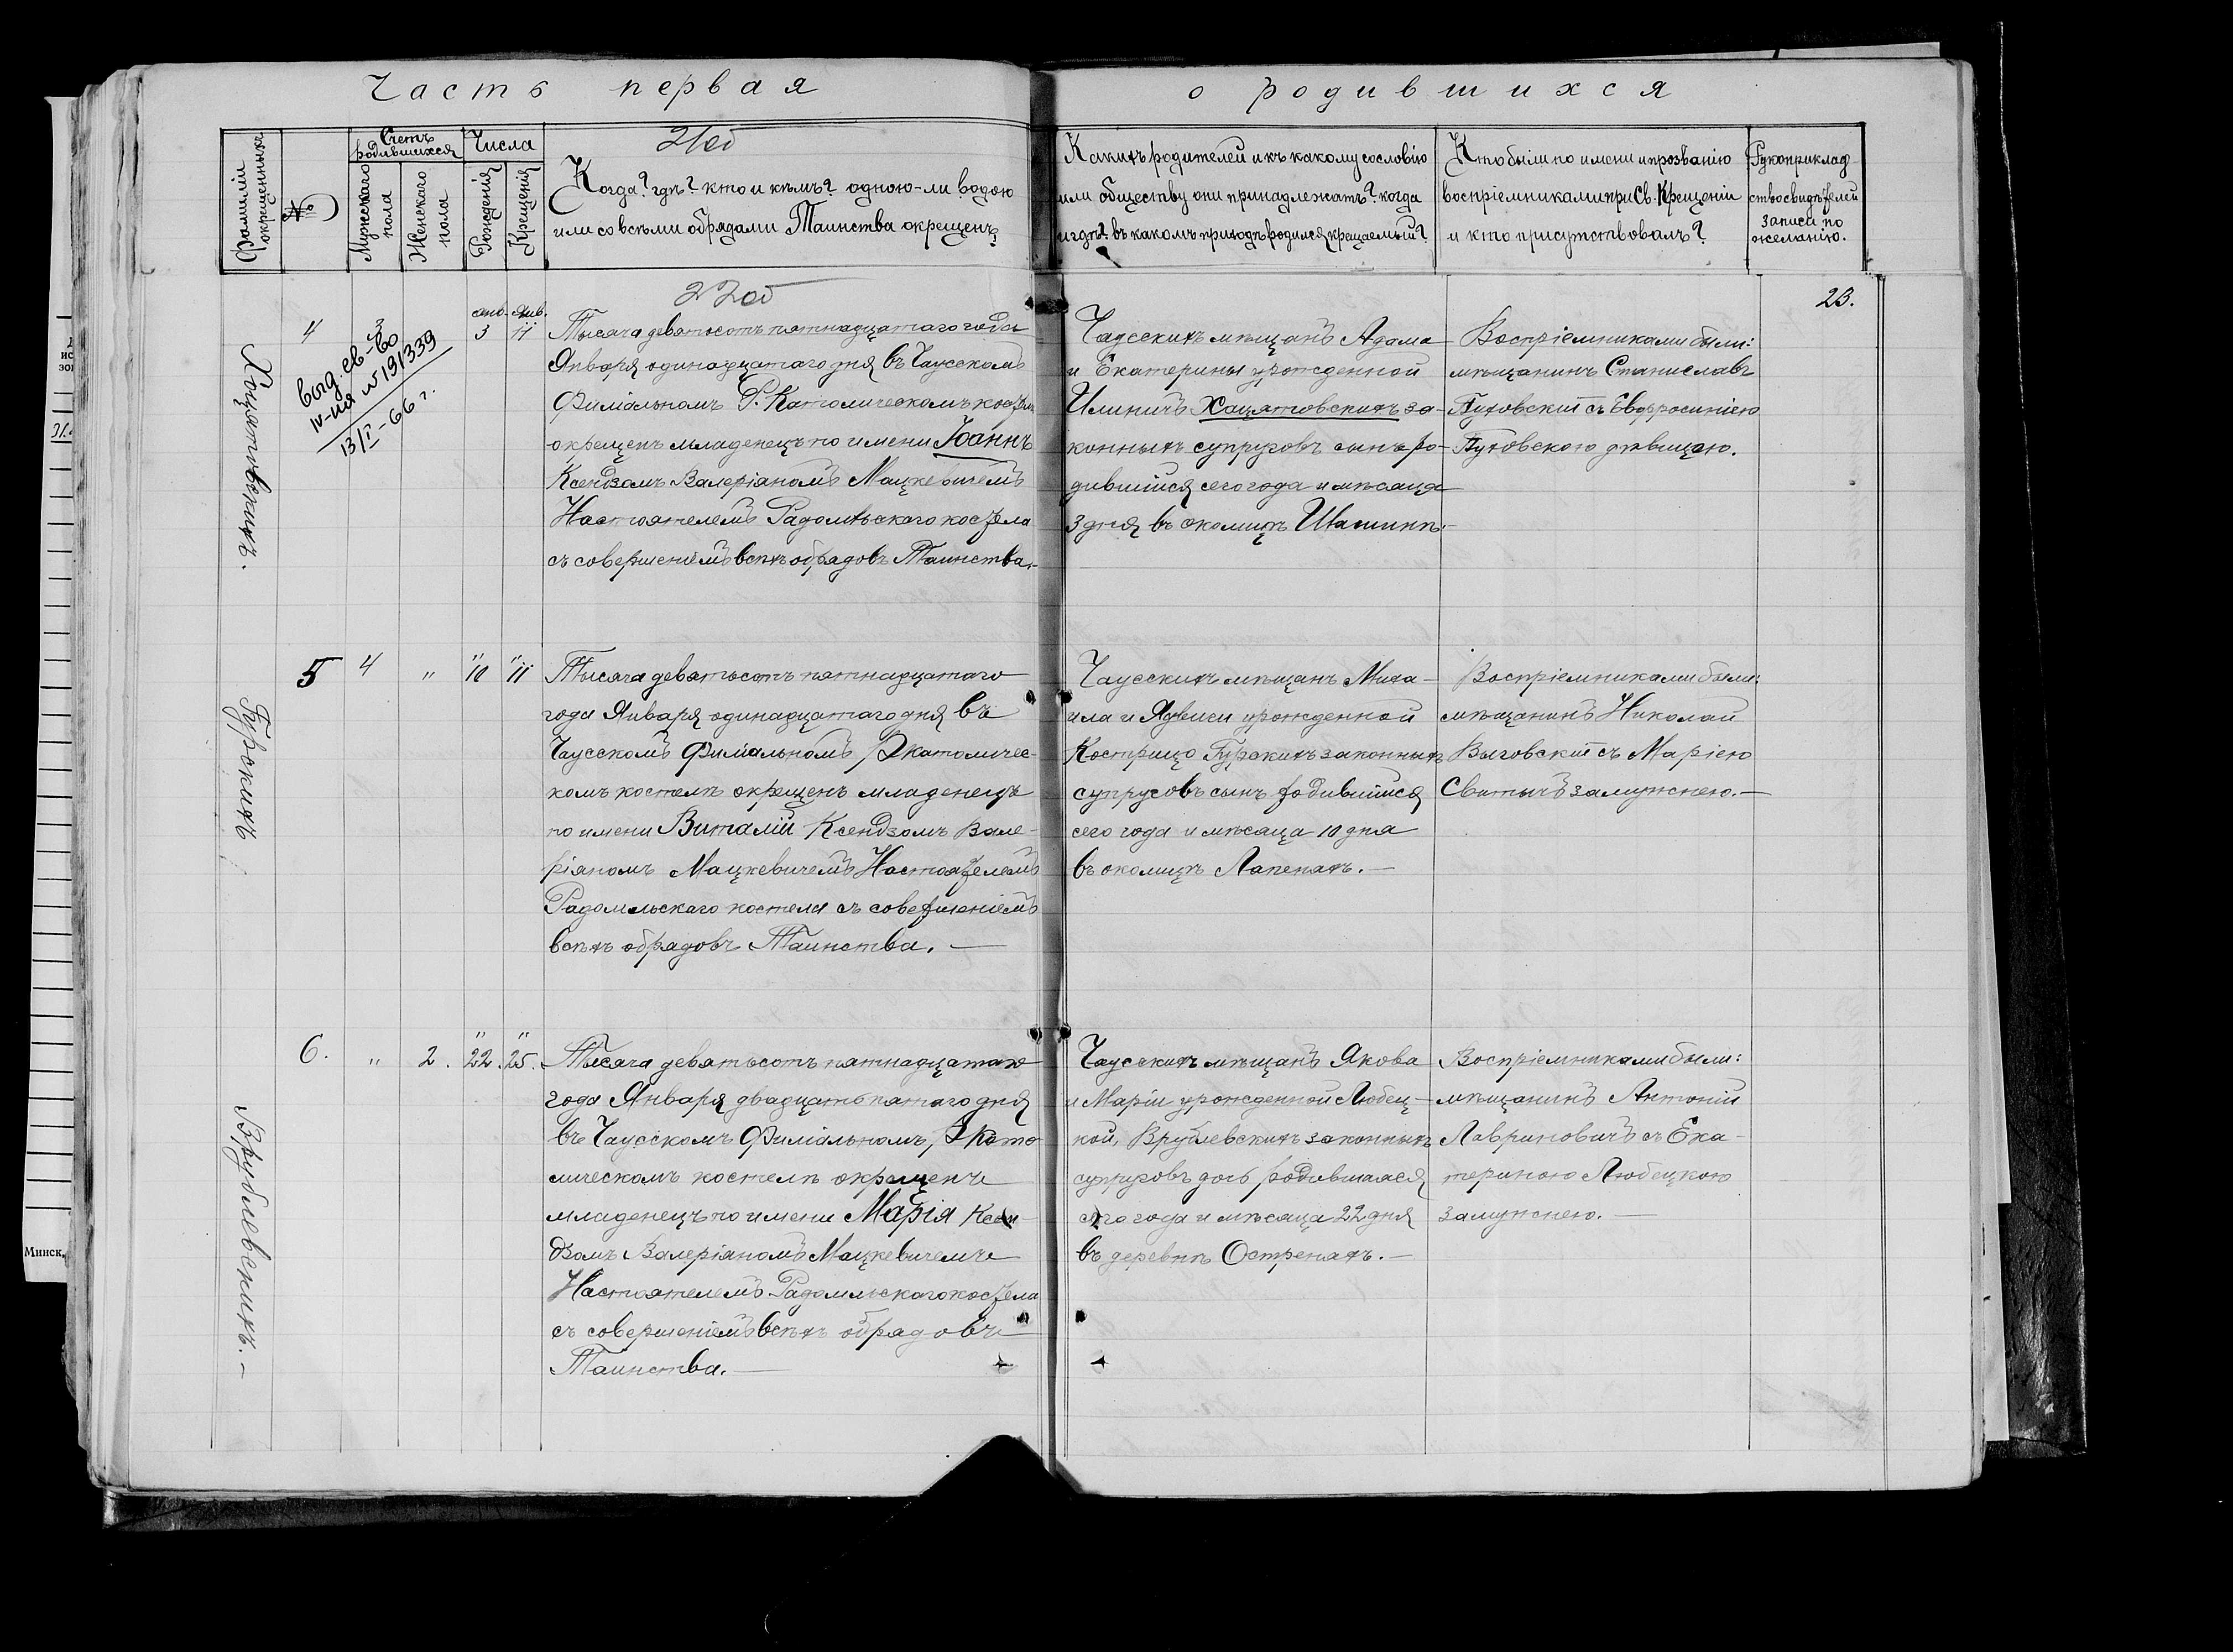 Часть первая о родившихся
Фамиліи окрещенныхъ
№
Счетъ родившихся
Мужескаго пола
Женскаго пола
Числа
Рожденія
Крещенія
21об
Когда? гдѣ? кто и кѣмъ? одною-ли водою
или со всѣми обрядами Таинства окрещенъ
Какихъ родителей и къ какому сословію
или обществу они принадлежатъ? когда
и гдѣ? въ какомъ приходѣ родился крещаемый?
Кто были по имени и прозванію
воспріемниками при Св. Крещеніи
и кто присутствовалъ?
Рукоприклад-
ство свидѣтелей
записи по
желанію.
22об
23.
Хацятовскихъ.
4
3
янв. янв.
3 11
выд. св-во
IV-ИЯ № 191339
13/I-66 г.
Тысяча девятьсотъ пятнадцатаго года
Января одинадцатаго дня въ Чаусскомъ
Филіальномъ Р. Католическомъ костелѣ
окрещенъ младенецъ по имени Іоаннъ
Ксендзомъ Валеріаномъ Мацкевичемъ
Настоятелемъ Радомльскаго костела
съ совершеніемъ всѣхъ обрядовъ Таинства.
Чаусскихъ мѣщанъ Адама
и Екатерины урожденной
Илиничъ Хацятовскихъ за-
конныхъ супруговъ сынъ ро-
дившийся сего года и мѣсяца
3 дня въ околицѣ
Воспріемниками были:
мѣщанинъ Станиславъ
Путовскій съ Евфросиніею
Путовскою дѣвицею.
Буракихъ
5 4 " 10 11
Тысяча девятьсотъ пятнадцатаго
года Января одинадцатаго дня въ
Чаусскомъ Филіальномъ Р Католичес-
комъ костелѣ окрещенъ младенецъ
по имени Виталій Ксендзомъ Вале-
ріаномъ Мацкевичемъ Настоятелемъ
Радомльскаго костела съ совершеніемъ
всѣхъ обрядовъ Таинства. —
Чаусскихъ мѣщанъ Миха-
ила и Ядвиги урожденной
Кострицо Буракихъ законныхъ
супруговъ сынъ родившийся
сего года и мѣсяца 10 дня
въ околицѣ Лапенахъ. —
Воспріемниками были:
мѣщанинъ Николай
Выговскій съ Маріею
Святычъ замужнею. —
Врублевскихъ. —
6. " 2. 22. 25.
Тысяча девятьсотъ пятнадцатаго
года Января двадцать пятаго дня
въ Чаусскомъ Филіальномъ Р Като
лическомъ костелѣ окрещенъ
младенецъ по имени Марія Ксен-
дзомъ Валеріаномъ Мацкевичемъ
Настоятелемъ Радомльскаго костела
съ совершеніемъ всѣхъ обрядовъ
Таинства. —
Чаусскихъ мѣщанъ Якова
и Маріи урожденной Любец-
кой, Врублевскихъ законныхъ
супруговъ дочь родившаяся
сего года и мѣсяца 22 дня
въ деревнѣ Остренахъ. —
Воспріемниками были:
мѣщанинъ Антоній
Лавриновичъ съ Ека-
териною Любецкою
замужнею. —
Минск,